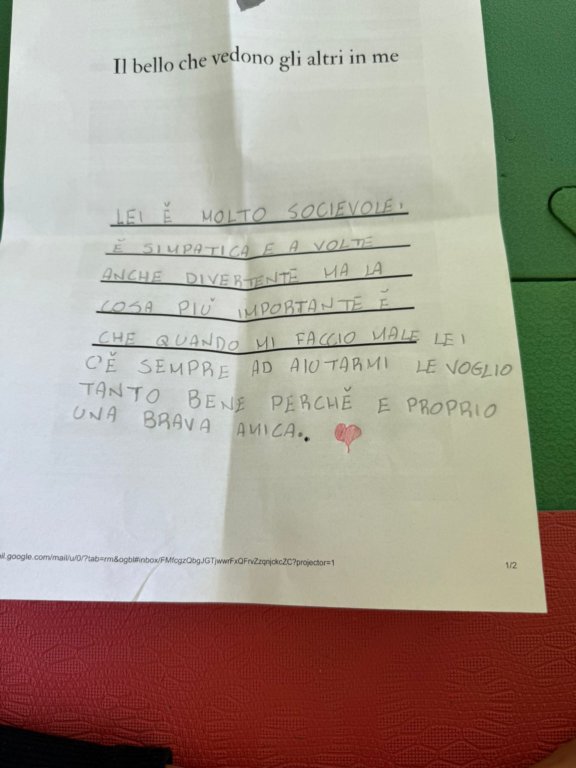 Il bello che vedono gli altri in me
LEI Ĕ MOLTO SOCIEVOLE,
Ĕ SIMPATICA E A VOLTE
ANCHE DIVERTENTE MA LA
COSA PIŬ IMPORTANTE Ĕ
CHE QUANDO MI FACCIO MALE LEI
C'Ĕ SEMPRE AD AIUTARMI LE VOGLIO
TANTO BENE PERCHĔ E PROPRIO
UNA BRAVA AMICA.
ail.google.com/mail/u/0/?tab=rm&ogbl#inbox/FMfcgzQbgJGTjwwrFxQFrvZzqnjckcZC?projector=1
1/2